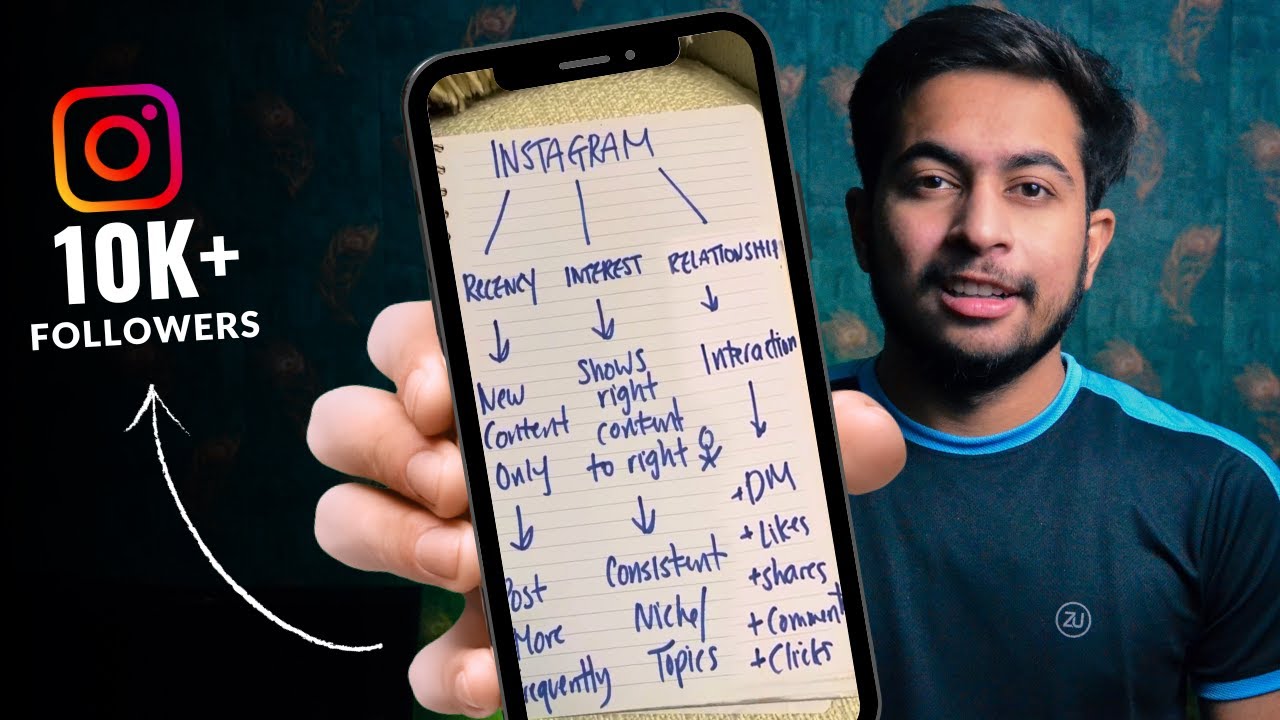 10K+
FOLLOWERS
INSTAGRAM
RECENCY
INTEREST
RELATIONSHIP
New
Content
Only
Post
More
Frequently
Shows
right
content
to right
Consistent
Niche/
Topics
Interaction
+DM
+Likes
+shares
+Comment
+Clicks
ZU